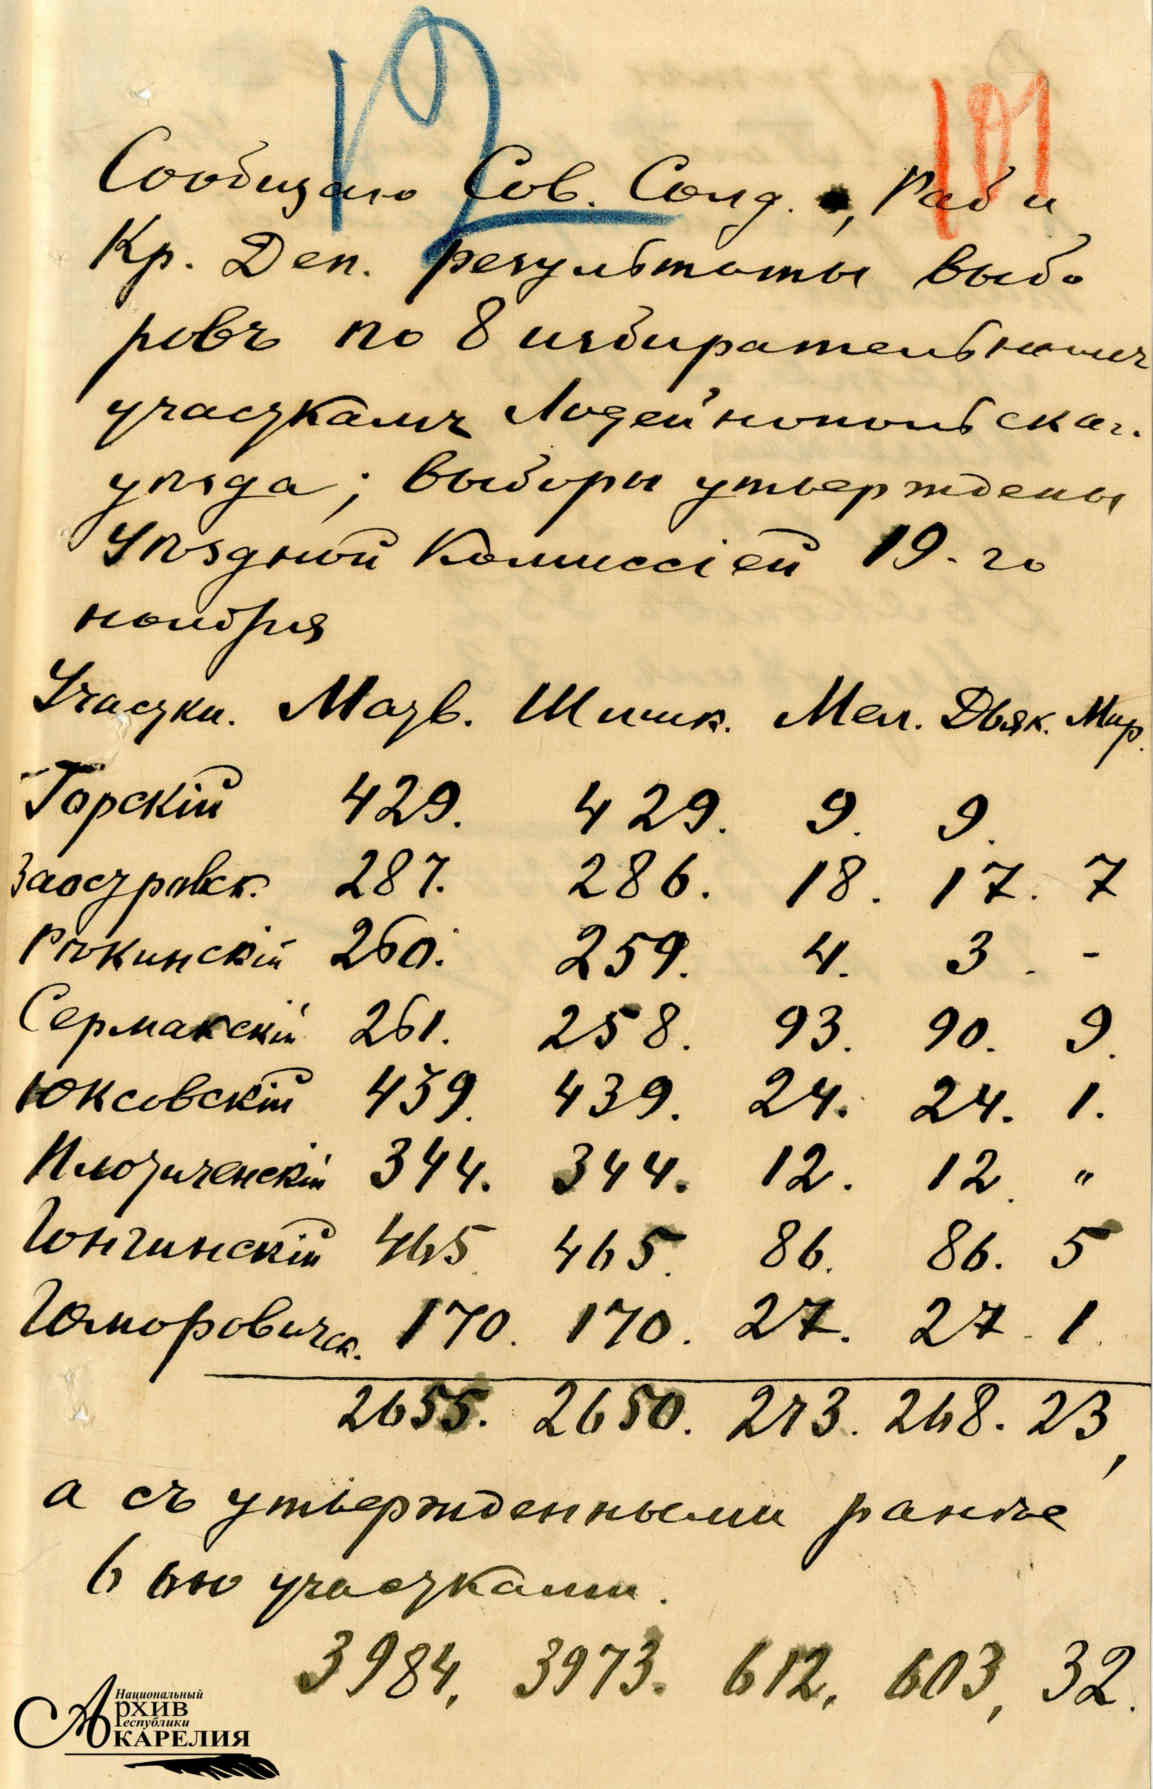 12
101
Сообщаю Сов. Солд., Раб и
Кр. Деп. результаты выбо
ровъ по 8 избирательнымъ
участкамъ Лодейнопольскаг.
уѣзда; выборы утверждены
Уѣздной Комиссіей 19-го
ноября
Участки. Матв. Шишк. Мел. Дьяк. Мир.
Горскій 429. 429. 9. 9.
Заостровск. 287. 286. 18. 17. 7
Рѣкинскій 260. 259. 4. 3. -
Сермакскій 261. 258. 93. 90. 9.
Юксовскій 439. 439. 24. 24. 1.
Плотиченскій 344. 344. 12. 12. "
Гонгинскій 465. 465. 86. 86. 5
Гоморовичск. 170. 170. 27. 27. 1.
2655. 2650. 273. 268. 23,
а съ утвержденными ранѣе
6 ью участками.
3984, 3973. 612, 603, 32.
Национальный
Архив
Республики
Карелия